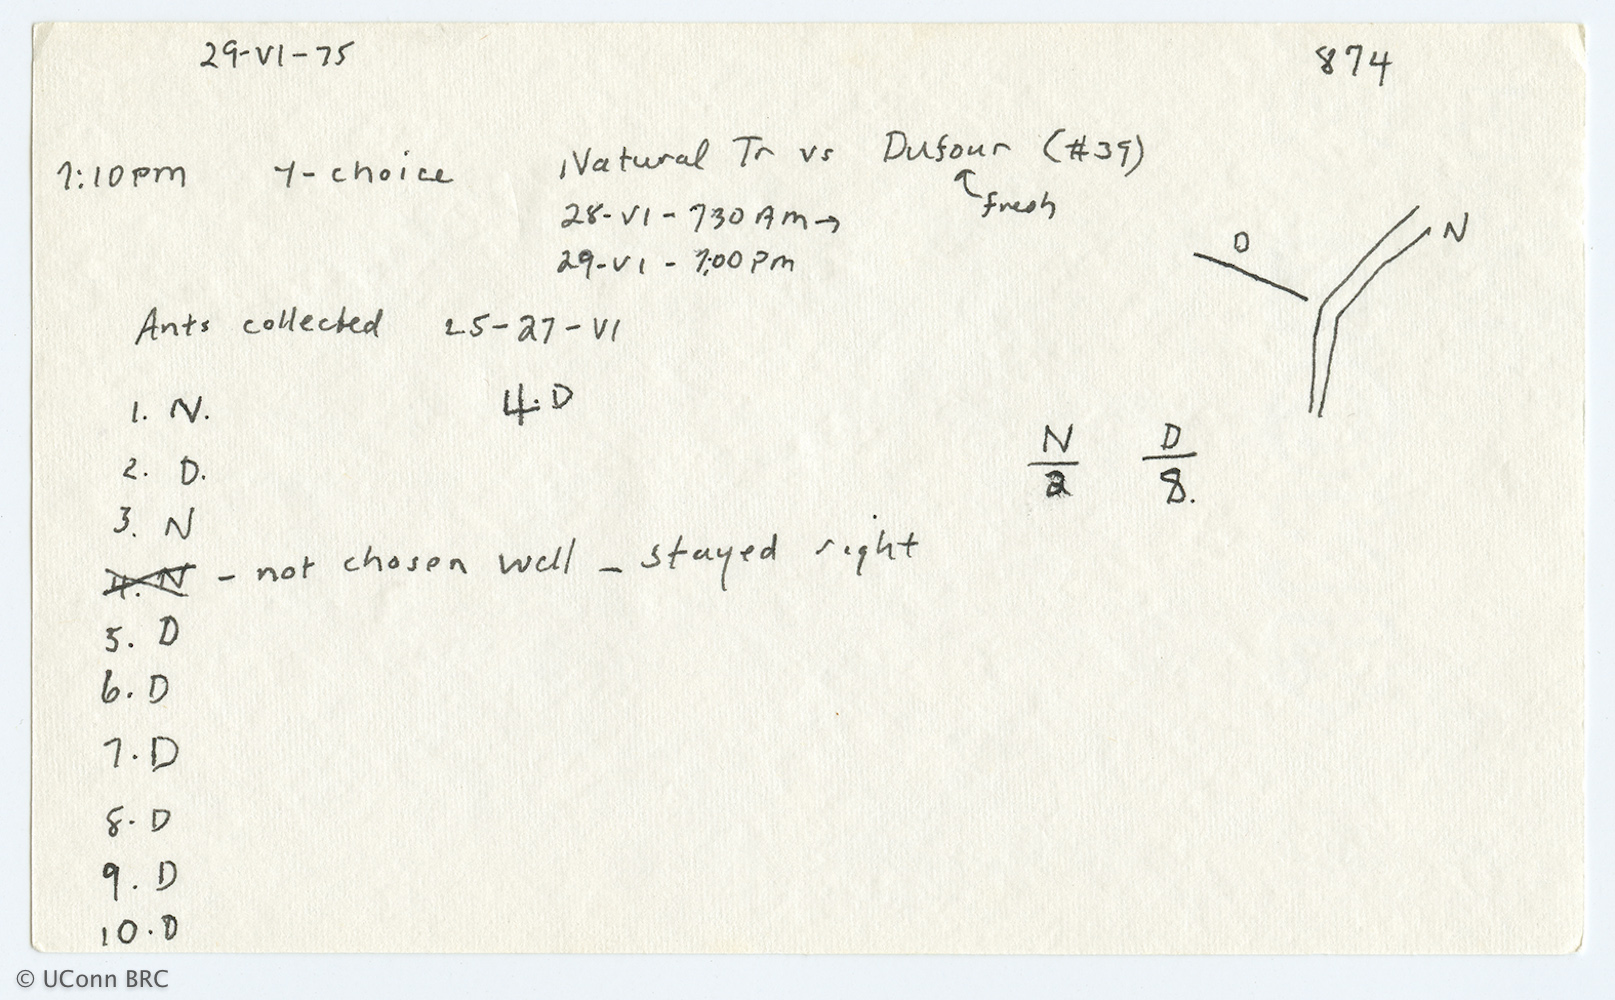 29-VI-75 874
7:10pm Y-choice Natural Tr vs Dufour (#39)
fresh
28-VI-730 Am→
29-VI-7:00 Pm
D N
Ants collected 25-27-VI
1. N. 4. D
N D
2 8.
2. D.
3. N
4. N - not chosen well - stayed right
5. D
6. D
7. D
8. D
9. D
10. D
© UConn BRC